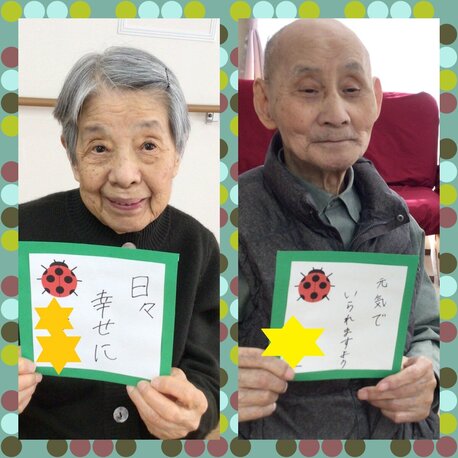 日々
幸せに
元気で
いられますよう